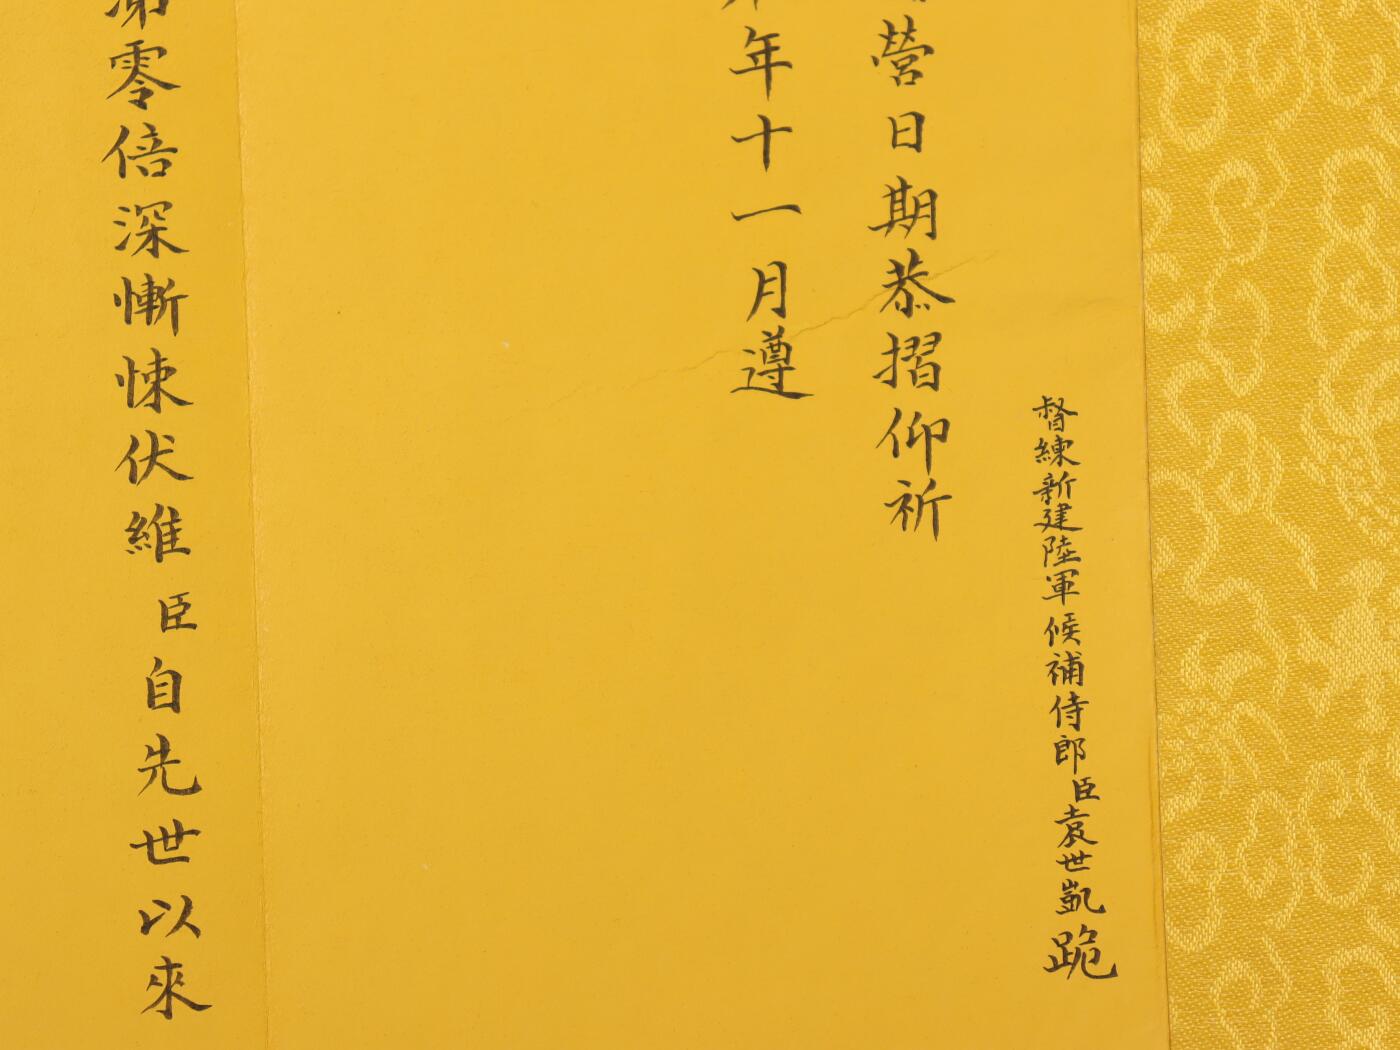 督練新建陸軍候補侍郎臣袁世凱跪
營日期恭摺仰祈
年十一月遵
零倍深慚悚伏維臣自先世以來